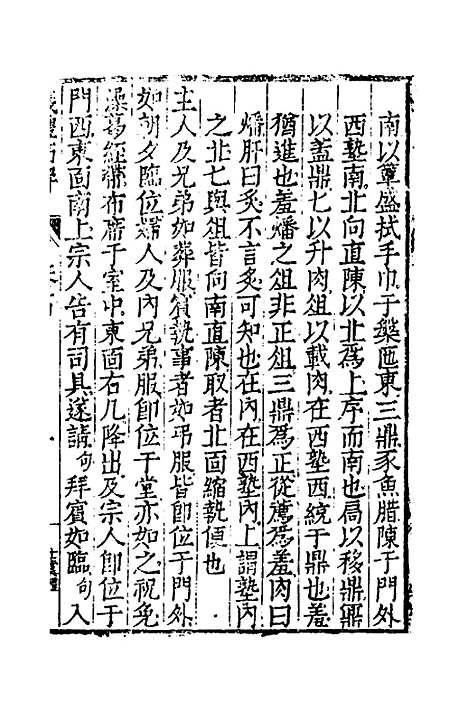 南以簞盛拭手巾于槃匜東三鼎豕魚腊陳于門外
西塾南北向直陳以北爲上序而南也扃以移鼎鼏
以蓋鼎匕以升肉俎以載肉在西塾西統于鼎也羞
猶進也羞燔之俎非正俎三鼎爲正從薦爲羞肉曰
燔肝曰炙不言炙可知也在內在西塾內上謂塾內
之北匕與俎皆向南直陳取者北面縮執便也
主人及兄弟如葬服賓執事者如弔服皆即位于門外
如朝夕臨位婦人及內兄弟服即位于堂亦如之祝免
澡葛絰帶布席于室中東面右几降出及宗人即位于
門西東面南上宗人告有司具遂請句拜賓如臨句入